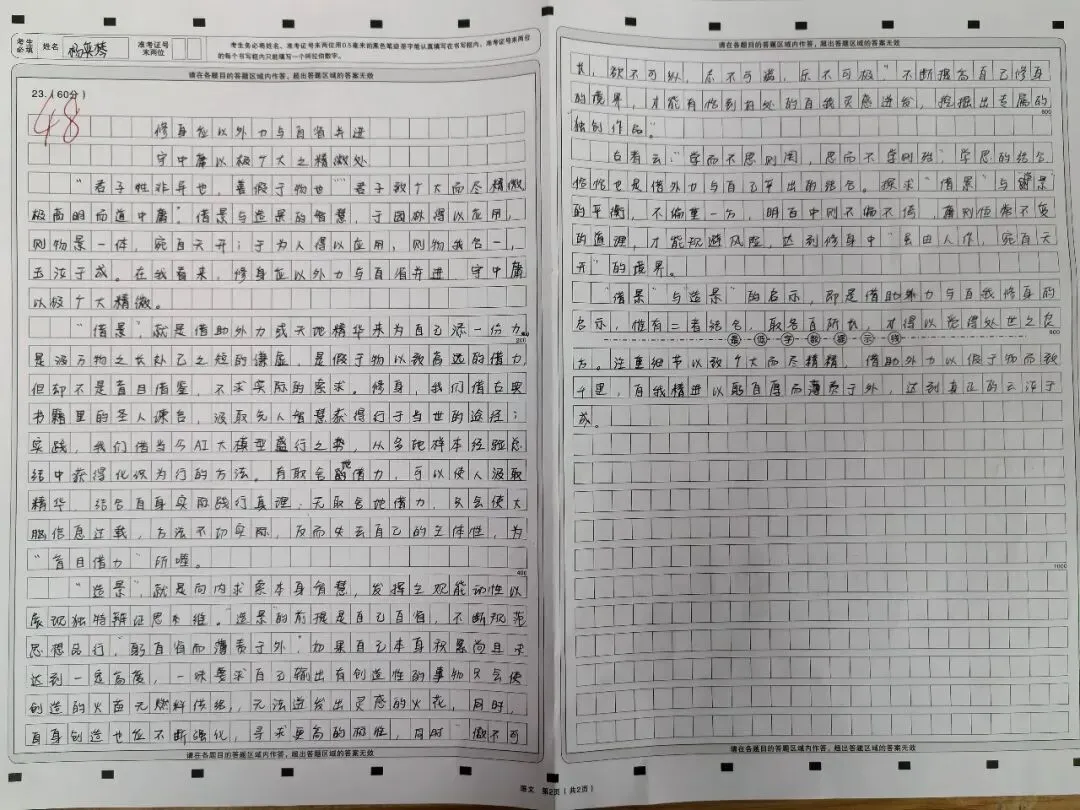 考生必填
姓名 杨英琴
准考证号末两位
考生务必将姓名、准考证号末两位用0.5毫米的黑色笔迹签字笔认真填写在书写框内，准考证号末两位
的每个书写框内只能填写一个阿拉伯数字。
请在各题目的答题区域内作答，超出答题区域的答案无效
23.（60分）
48
修身应以外力与自省并进
守中庸以极广大之精微处
“君子性非异也，善假于物也”“君子致广大而尽精微
极高明而道中庸”借景与造景的智慧，于园林得以应用，
则物景一体，宛自天开；于为人得以应用，则物我合一，
玉汝于成。在我看来，修身应以外力与自省并进，守中庸
以极广大精微。
“借景”就是借助外力或天地精华来为自己添一份力，
200
是汲万物之长补己之短的谦虚，是假于物以致高远的借力，
但却不是盲目借鉴，不求实际的索求。修身，我们借古典
书籍里的圣人课台，汲取先人智慧获得行于与世的途径；
实践，我们借当今AI大模型盛行之势，从多地样本经验总
结中获得化识为行的方法。有取舍地借力，可以使人汲取
精华，结合自身实际践行真理；无取舍地借力，只会使大
脑信息过载，方法不切实际，反而失去自己的主体性，为
“盲目借力”所噬。
400
“造景”，就是向内求索本身智慧，发挥主观能动性以
展现独特辩证思本维。“造景”的前提是自己自省，不断规范
思想品行，“躬自省而薄责于外”如果自己本身积累尚且未
达到一定高度，一味要求自己输出有创造性的事物只会使
创造的火苗无燃料供给，无法迸发出灵感的火花，同时，
自身创造也应不断强化，寻求更高的韧性，同时“傲不可
请在各题目的答题区域内作答，超出答题区域的答案无效
请在各题目的答题区域内作答，超出答题区域的答案无效
长，欲不可纵，志不可满，乐不可极”不断提高自己修身
的境界，才能有恰到好处的自我灵感迸发，挖掘出专属的
600
独创作品”
古有云：“学而不思则罔，思而不学则殆”学思的结合
恰恰也是借外力与自己平出的结合。探求“借景”与“造景”
的平衡，不偏重一方，明白中则不偏不倚，庸则恒常不变
的道理，才能规避风险，达到修身中“虽由人作，宛自天
开”的境界。
“借景”与“造景”的启示，即是借助外力与自我修身的
启示，惟有二者结合，取各自所长，才得以觉得处世之良
800
最低字数提示线
方。注重细节以致广大而尽精精，借助外力以假于物而致
千里，自我精进以躬自厚而薄责于外，达到真正的玉汝于
成。
1000
请在各题目的答题区域内作答，超出答题区域的答案无效
语文 第2页（共2页）